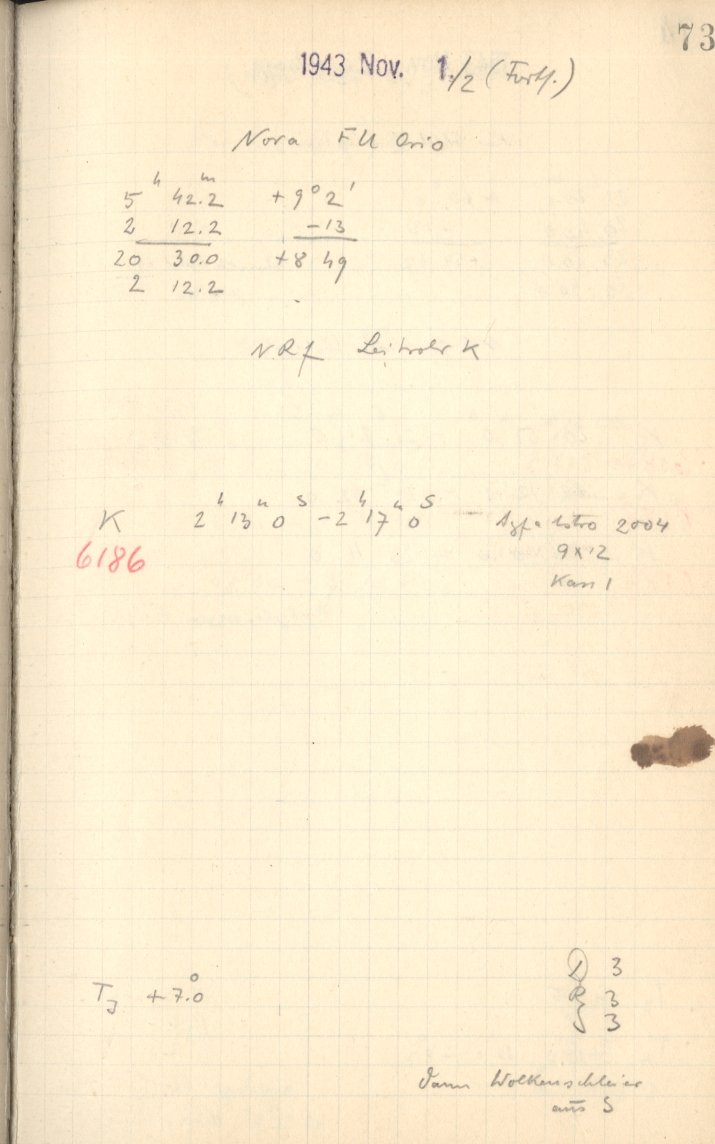 73
1943 Nov. 1./2 (Fortf.)
Nova FU Orio
5ʰ 42.2ᵐ +9° 2'
2 12.2 -13
20 30.0 +8 49
2 12.2
Leitrohr K
K 2ʰ 13ᵐ 0ˢ - 2ʰ 17ᵐ 0ˢ - Agfa Astro 2004
6186 9x12
Kass 1
D 3
T_J +7.0° R 3
S 3
Dann Wolkenschleier
aus S